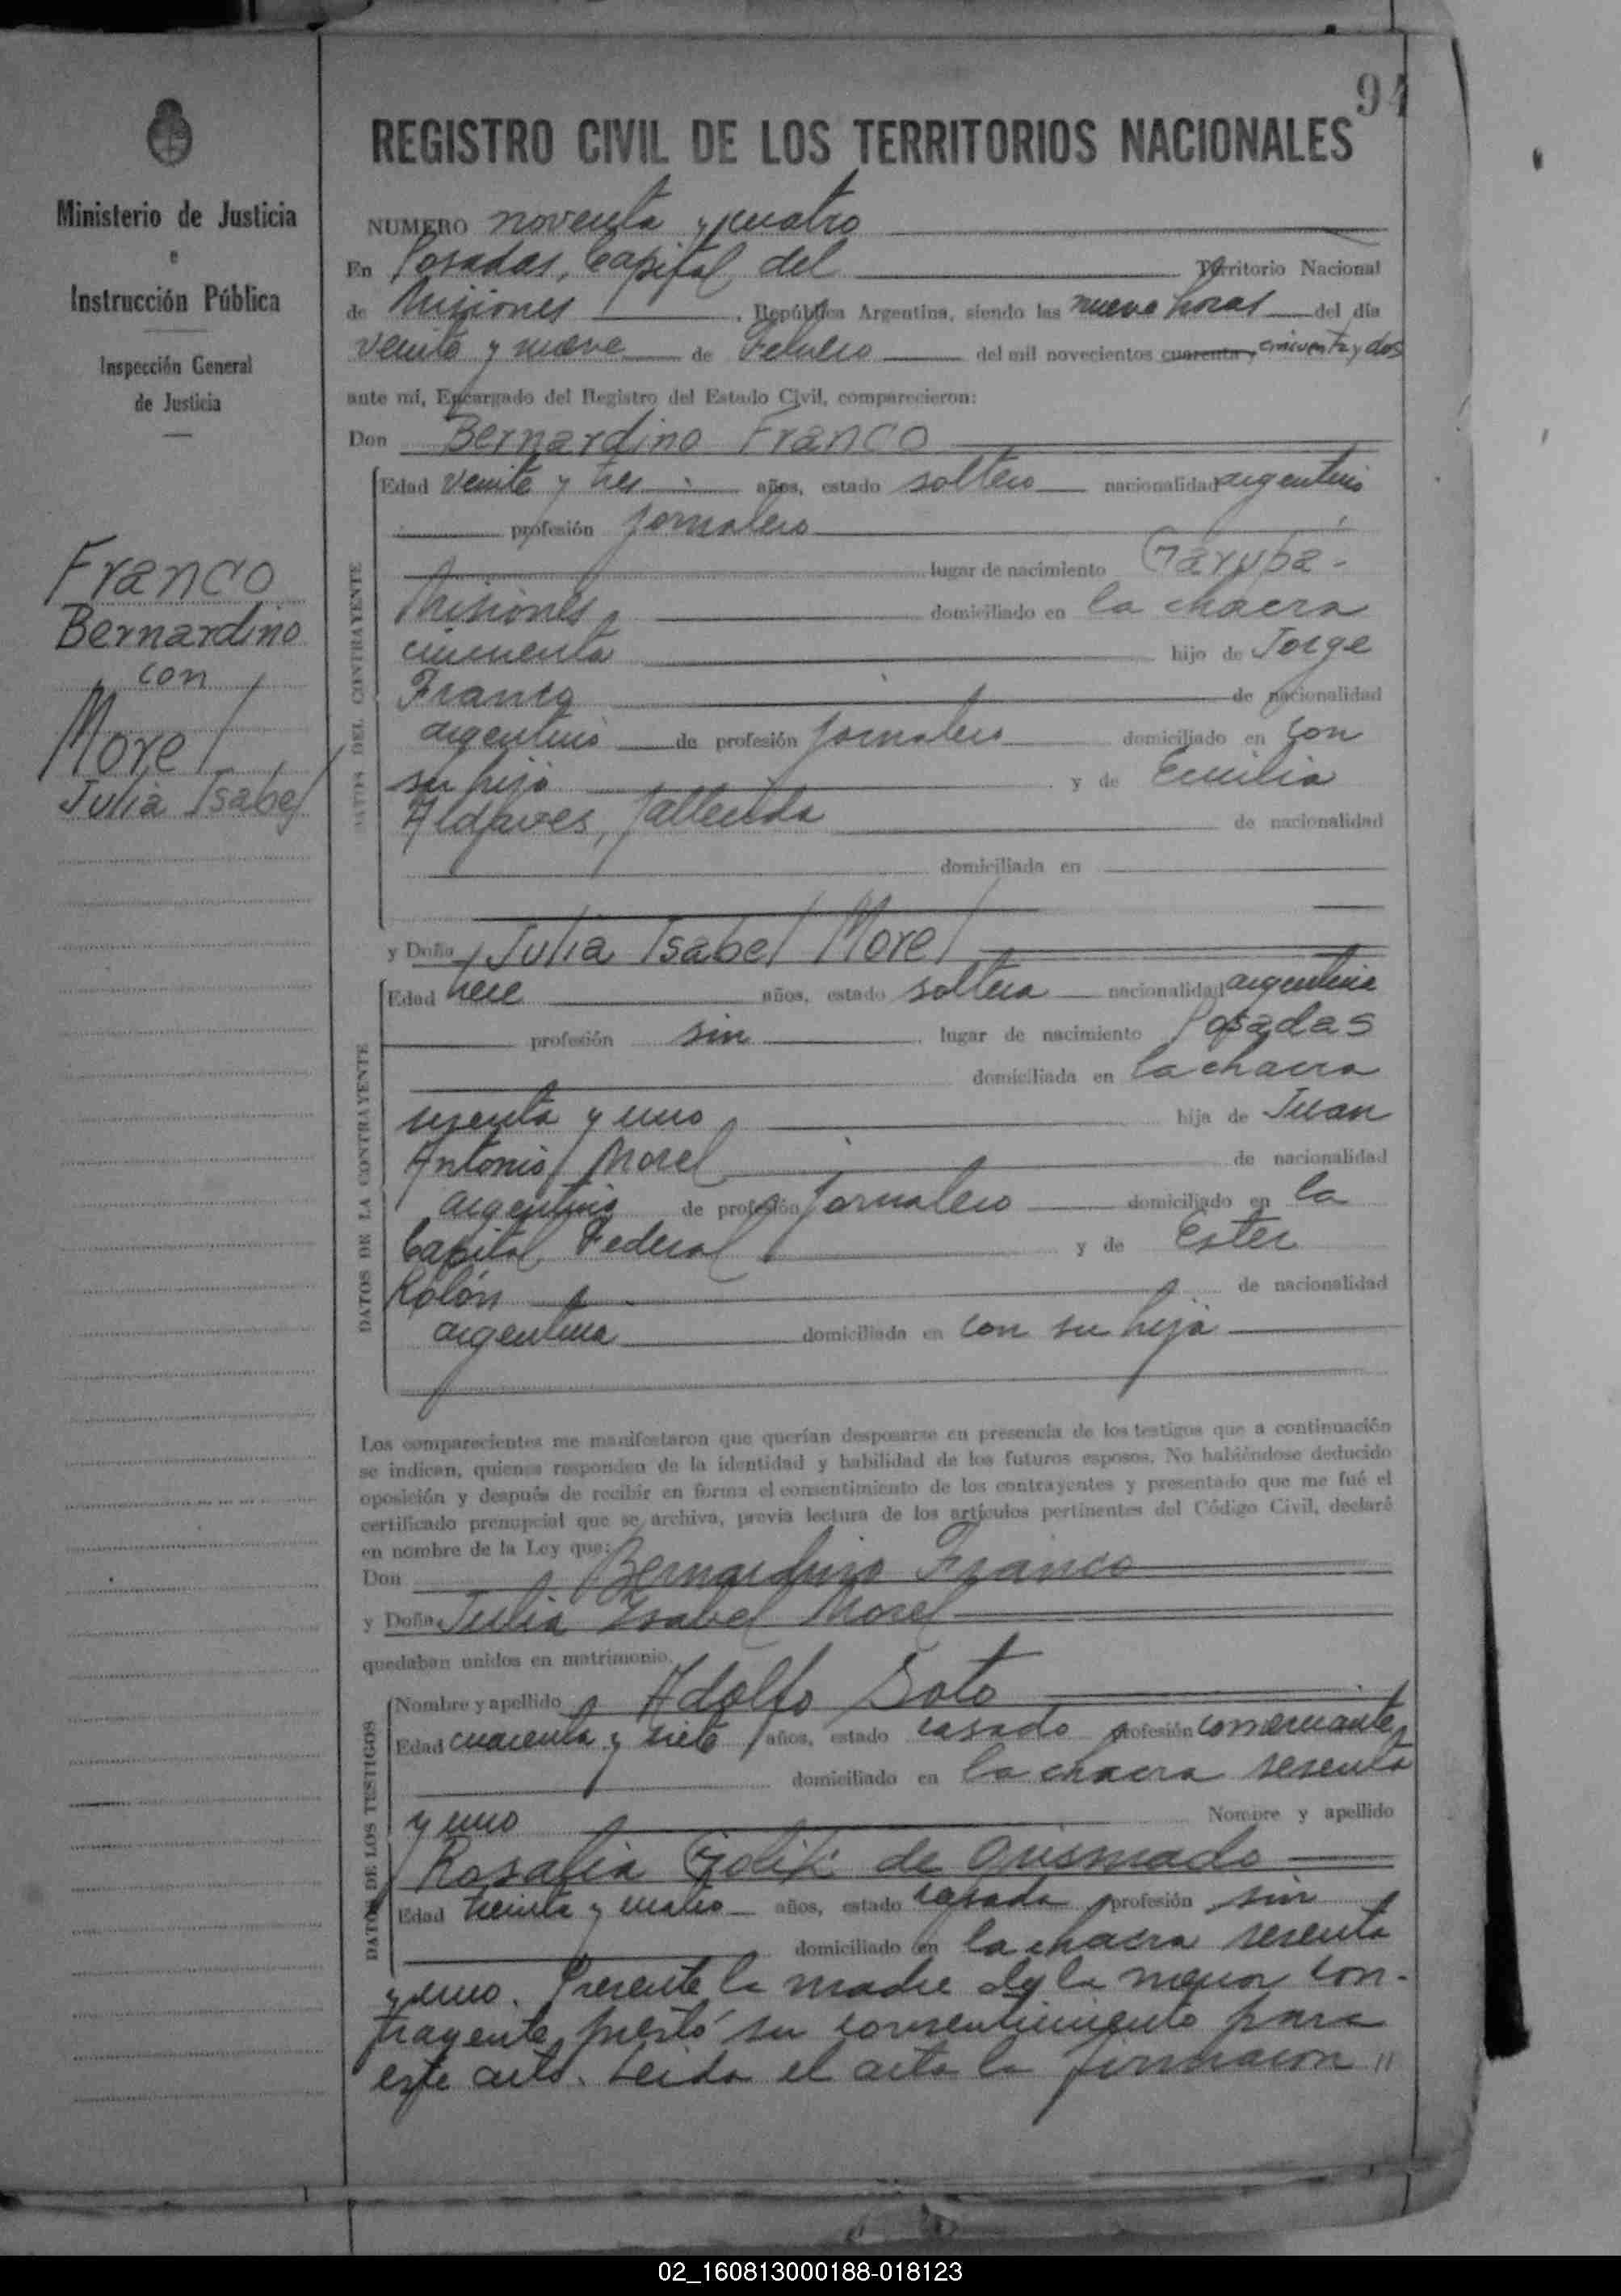 94
REGISTRO CIVIL DE LOS TERRITORIOS NACIONALES
Ministerio de Justicia
e
Instrucción Pública
Inspección General
de Justicia
Franco
Bernardino
con
Morel
Julia Isabel
NUMERO noventa y cuatro
En Posadas, Capital del Territorio Nacional
de Misiones, República Argentina, siendo las nueve horas del día
veinte y nueve de Febrero del mil novecientos cuarenta y cincuenta y dos
ante mí, Encargado del Registro del Estado Civil, comparecieron:
Don Bernardino Franco
DATOS DEL CONTRAYENTE
Edad veinte y tres años, estado soltero nacionalidad argentino
profesión jornalero
lugar de nacimiento Garupá-
Misiones domiciliado en la chacra
cincuenta hijo de Jorge
Franco de nacionalidad
argentino de profesión jornalero domiciliado en con
su hijo y de Emilia
fallecida de nacionalidad
domiciliada en
y Doña Julia Isabel Morel
DATOS DE LA CONTRAYENTE
Edad trece años, estado soltera nacionalidad argentina
profesión sin lugar de nacimiento Posadas
domiciliada en la chacra
sesenta y uno hija de Juan
Antonio Morel de nacionalidad
argentino de profesión jornalero domiciliado en la
Capital Federal y de Ester
Rolón de nacionalidad
argentina domiciliada en con su hija
Los comparecientes me manifestaron que querían desposarse en presencia de los testigos que a continuación
se indican, quienes responden de la identidad y habilidad de los futuros esposos. No habiéndose deducido
oposición y después de recibir en forma el consentimiento de los contrayentes y presentado que me fué el
certificado prenupcial que se archiva, previa lectura de los artículos pertinentes del Código Civil, declaré
en nombre de la Ley que:
Don Bernardino Franco
y Doña Julia Isabel Morel
quedaban unidos en matrimonio.
DATOS DE LOS TESTIGOS
Nombre y apellido Adolfo Soto
Edad cuarenta y siete años, estado casado profesión comerciante
domiciliado en la chacra sesenta
y uno Nombre y apellido
Rosalia Golik de Quismado
Edad treinta y cuatro años, estado casada profesión sin
domiciliado en la chacra sesenta
y uno. Presente la madre de la menor con-
trayente, prestó su consentimiento para
este acto. Leida el acta la firmaron "
02_160813000188-018123